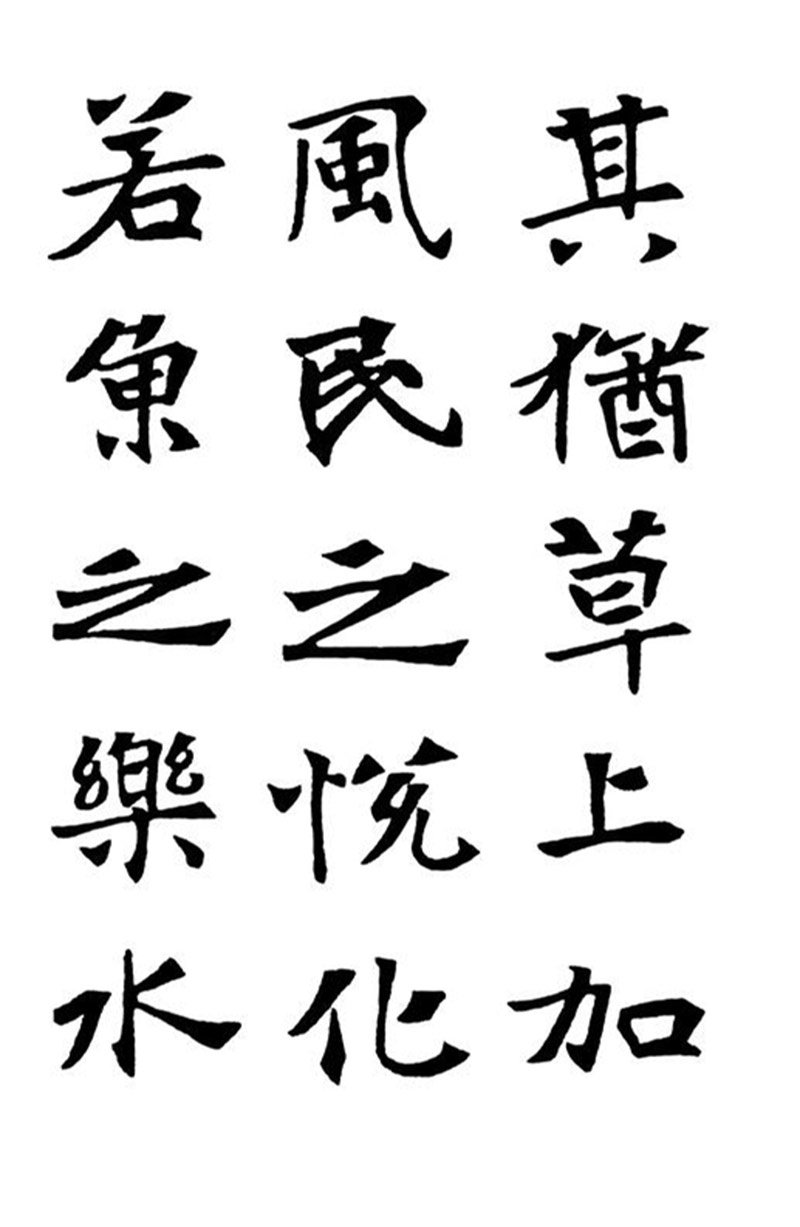 其猶草上加
風民之悅化
若魚之樂水